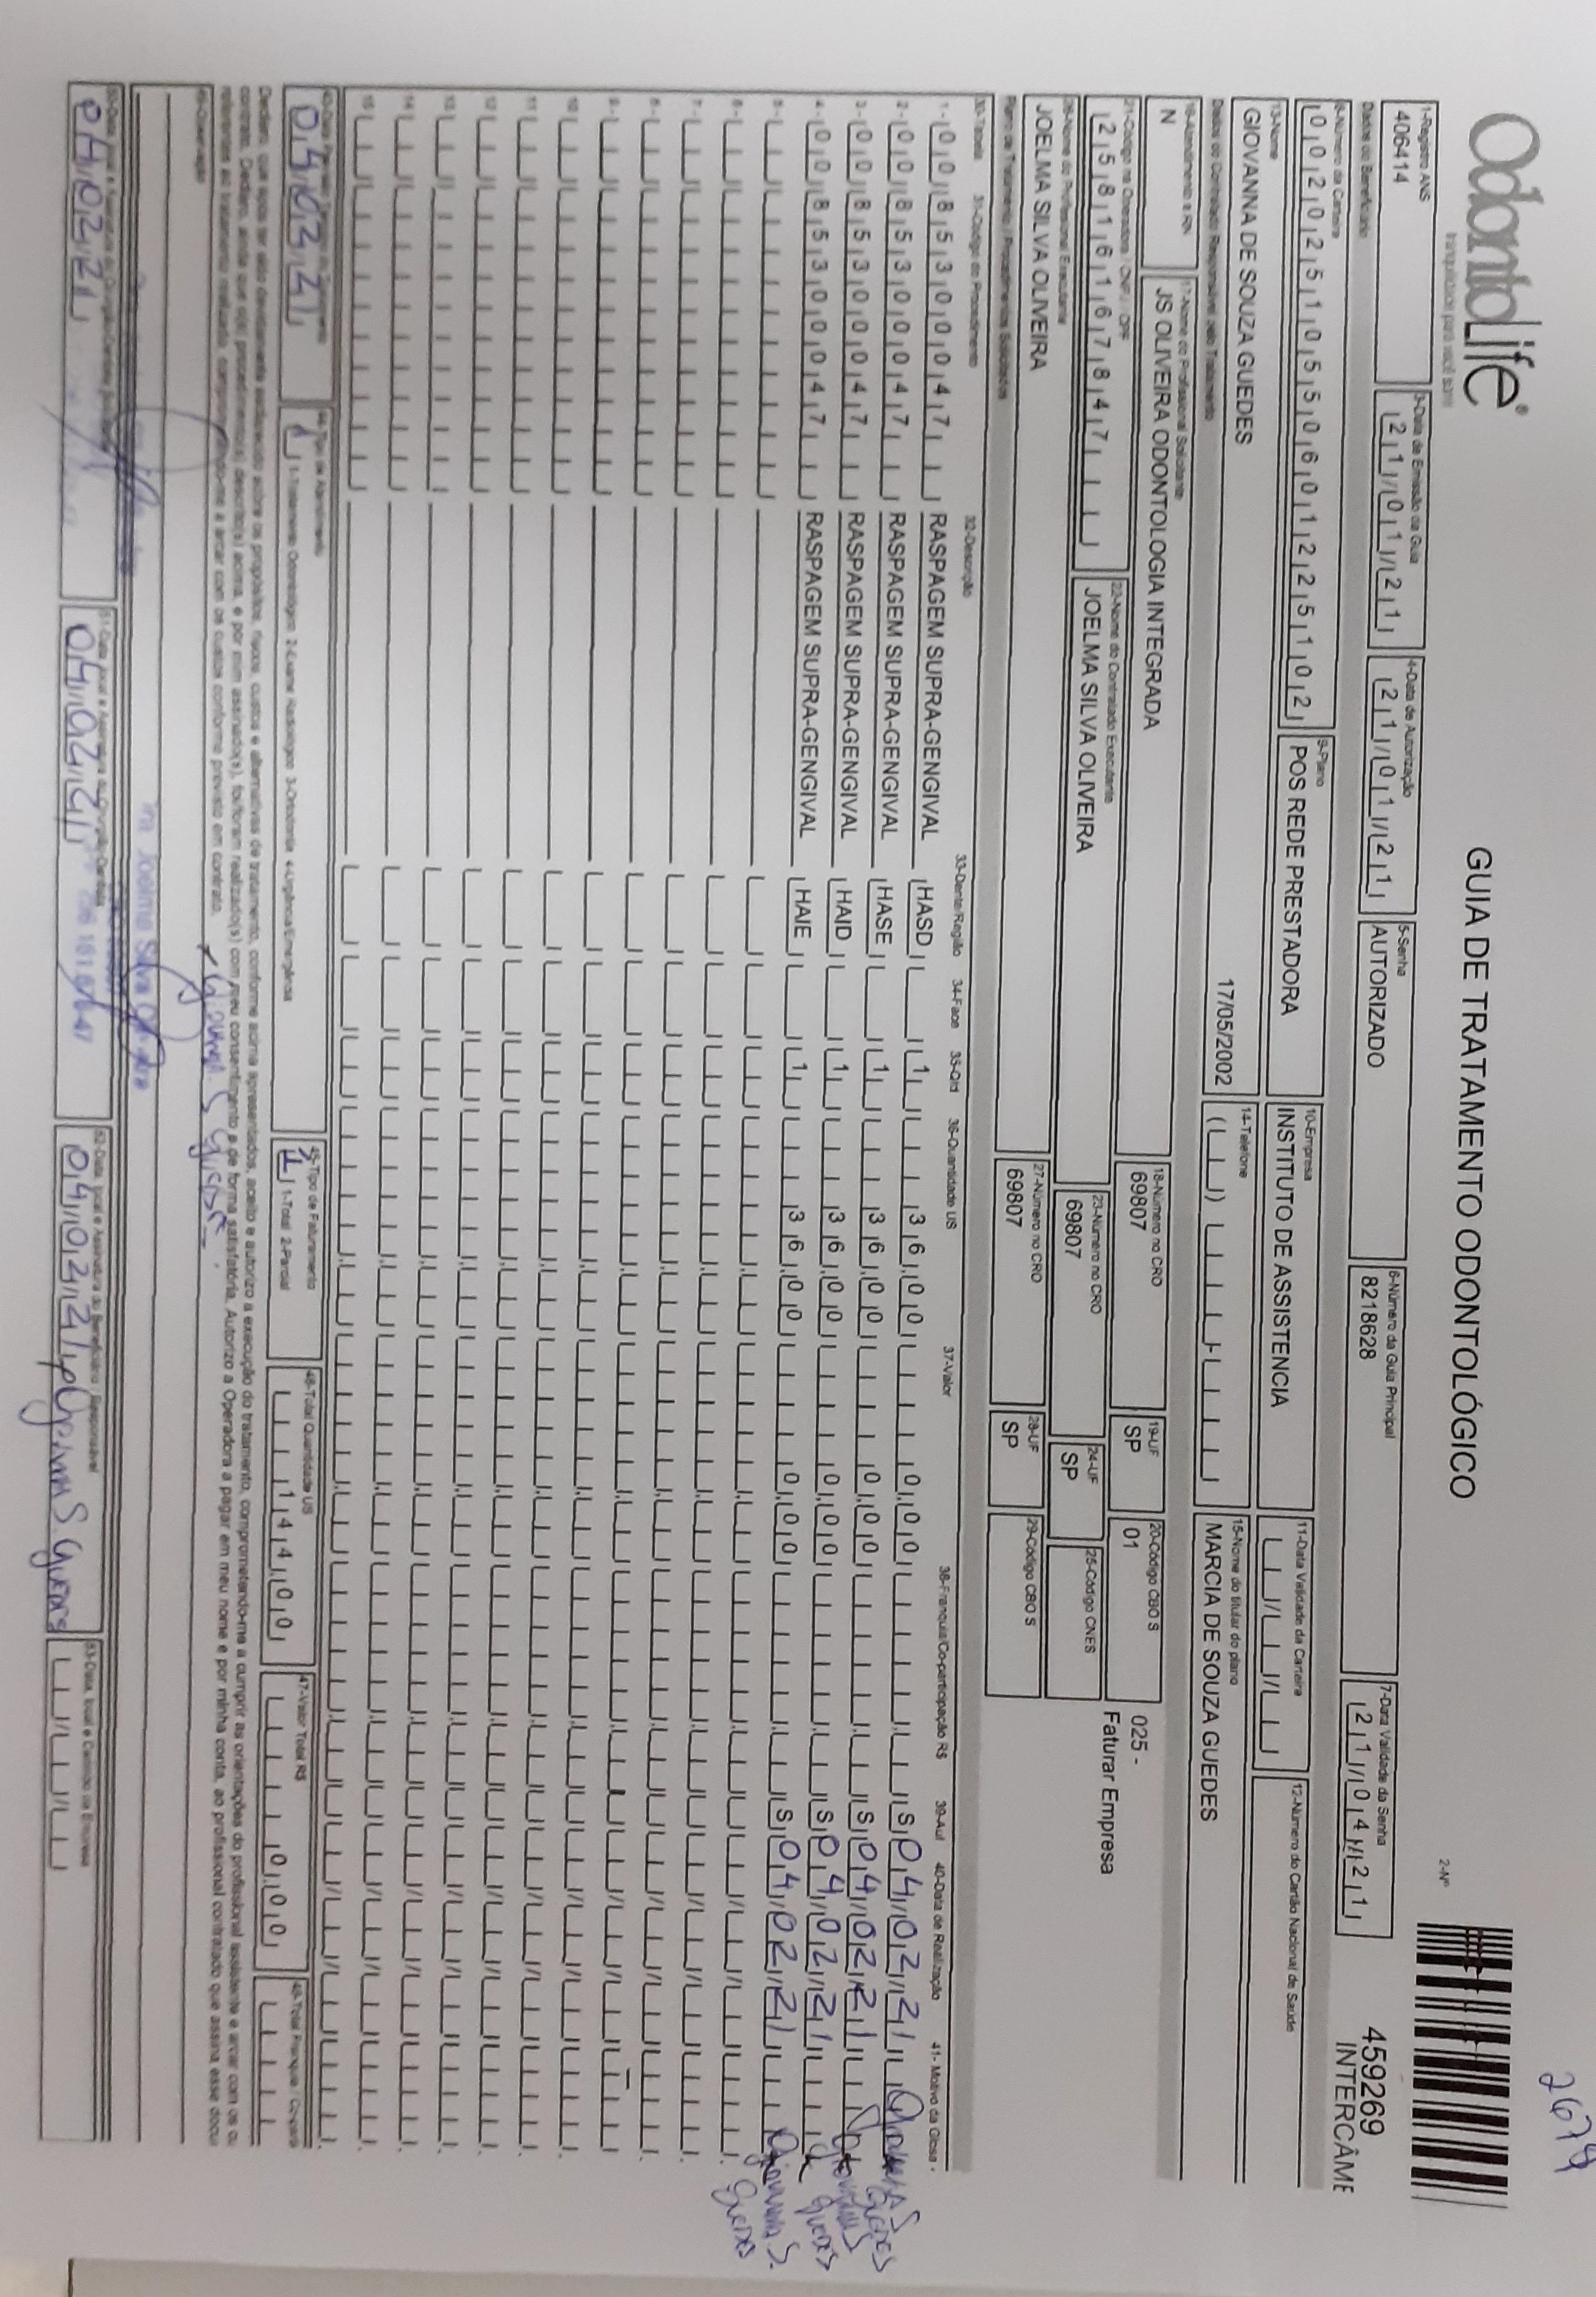 2674
OdontoLife®
tranquilidade para você sorrir
GUIA DE TRATAMENTO ODONTOLÓGICO
2-Nº
459269
INTERCÂMB
1-Registro ANS
406414
3-Data de Emissão da Guia
21/01/21
4-Data de Autorização
21/01/21
5-Senha
AUTORIZADO
6-Número da Guia Principal
8218628
7-Data Validade da Senha
21/04/21
Dados do Beneficiário
8-Número da Carteira
00202510550601225102
9-Plano
POS REDE PRESTADORA
10-Empresa
INSTITUTO DE ASSISTENCIA
11-Data Validade da Carteira
12-Número do Cartão Nacional de Saúde
13-Nome
GIOVANNA DE SOUZA GUEDES
17/05/2002
14-Telefone
15-Nome do titular do plano
MARCIA DE SOUZA GUEDES
Dados do Contratado Responsável pelo Tratamento
16-Atendimento a RN
N
17-Nome do Profissional Solicitante
JS OLIVEIRA ODONTOLOGIA INTEGRADA
18-Número no CRO
69807
19-UF
SP
20-Código CBO S
01
025 -
Faturar Empresa
21-Código na Operadora / CNPJ / CPF
25816167847
22-Nome do Contratado Executante
JOELMA SILVA OLIVEIRA
23-Número no CRO
69807
24-UF
SP
25-Código CNES
26-Nome do Profissional Executante
JOELMA SILVA OLIVEIRA
27-Número no CRO
69807
28-UF
SP
29-Código CBO S
Plano de Tratamento / Procedimentos Solicitados
30-Tabela 31-Código do Procedimento 32-Descrição 33-Dente/Região 34-Face 35-Qtd 36-Quantidade US 37-Valor 38-Franquia/Co-participação R$ 39-Aut 40-Data de Realização 41- Motivo da Glosa -
1- 00 85300047 RASPAGEM SUPRA-GENGIVAL HASD 1 36,00 0,00 S 04/02/21 Giovanna S Guedes
2- 00 85300047 RASPAGEM SUPRA-GENGIVAL HASE 1 36,00 0,00 S 04/02/21 Giovanna S Guedes
3- 00 85300047 RASPAGEM SUPRA-GENGIVAL HAID 1 36,00 0,00 S 04/02/21 Guedes
4- 00 85300047 RASPAGEM SUPRA-GENGIVAL HAIE 1 36,00 0,00 S 04/02/21 Giovanna S. Guedes
5-
6-
7-
8-
9-
10
11
12
13
14
15
43-Data
04/02/21
44-Tipo de Atendimento
1 1-Tratamento Odontológico 2-Exame Radiológico 3-Ortodontia 4-Urgência/Emergência
45-Tipo de Faturamento
1 1-Total 2-Parcial
46-Total Quantidade US
144,00
47-Valor Total R$
0,00
48-Total Franquia / Co-part
Declaro, que após ter sido devidamente esclarecido sobre os propósitos, riscos, custos e alternativas de tratamento, conforme acima apresentados, aceito e autorizo a execução do tratamento, comprometendo-me a cumprir as orientações do profissional assistente e arcar com os cu
contrato. Declaro, ainda que o(s) procedimento(s) descrito(s) acima, e por mim assinado(s), foi/foram realizado(s) com meu consentimento e de forma satisfatória. Autorizo a Operadora a pagar em meu nome e por minha conta, ao profissional contratado que assina esse docu
referentes ao tratamento realizado, comprometendo-me a arcar com os custos conforme previsto em contrato.
49-Observação
Giovanna S Guedes
Dra Joelma Silva Oliveira
50-Data, local e Assinatura do Cirurgião-Dentista
04/02/21
51-Data, local e Assinatura do Cirurgião-Dentista
04/02/21
52-Data, local e Assinatura do Beneficiário / Responsável
04/02/21 Giovanna S. Guedes
53-Data, local e Carimbo da Empresa